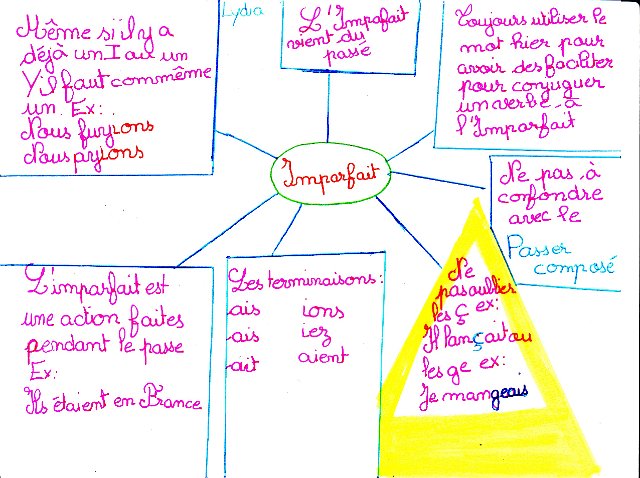 Même si il y a
déjà un I ou un
Y il faut commême
un Ex:
Nous fuyions
Nous payions
Lydia
L'Impafait
vient du
passé
Toujours utiliser le
mot hier pour
avoir des faciliter
pour conjuguer
un verbe à
l'Imparfait
Imparfait
Ne pas à
confondre
avec le
Passer
composé
L'imparfait est
une action faites
pendant le passe
Ex:
Ils étaient en France
Les terminaisons:
ais ions
ais iez
ait aient
Ne
pas oublier
les ç ex:
Il lançait ou
les ge ex:
Je mangeais